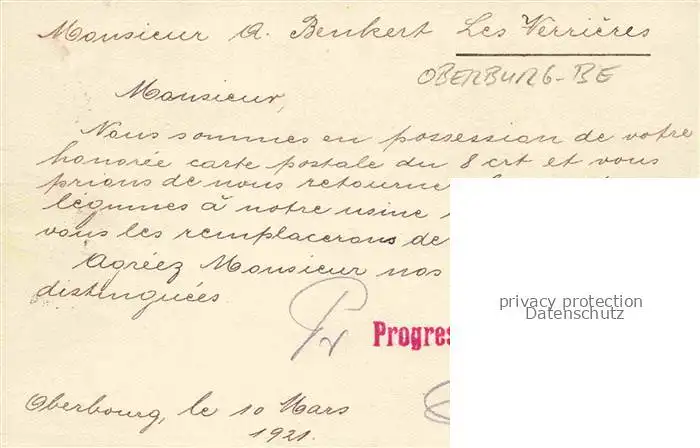 Monsieur A. Benkert Les Verrières
OBERBURG-BE
Monsieur,
Nous sommes en possession de votre
honorée carte postale du 8 crt et vous
prions de nous retourne
légumes à notre usine
vous les remplacerons de
Agréez Monsieur nos
distinguées.
privacy protection
Datenschutz
Pr Progres
Oberbourg, le 10 Mars
1921.